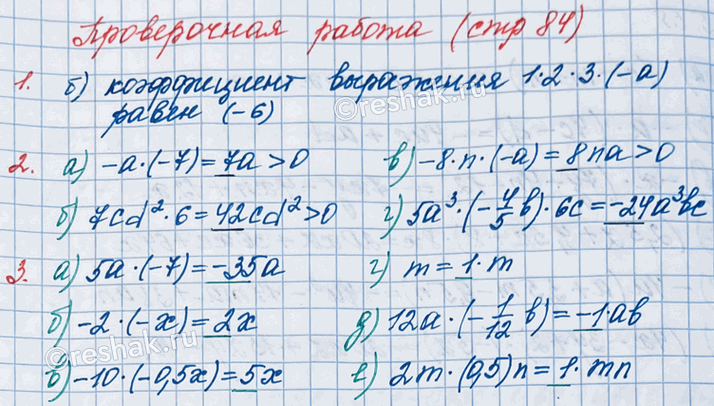 Проверочная работа (стр 84)
1. б) коэффициент выражения 1·2·3·(-а)
равен (-6)
2. а) -a·(-7)=7a>0 в) -8·n·(-a)=8na>0
б) 7cd²·6=42cd²>0 г) 5a³·(-4/5b)·6c=-24a³bc
3. а) 5a·(-7)=-35a г) m=1·m
б) -2·(-x)=2x д) 12a·(-1/12b)=-1·ab
в) -10·(-0,5x)=5x е) 2m·(0,5)n=1·mn
©reshak.ru
©reshak.ru